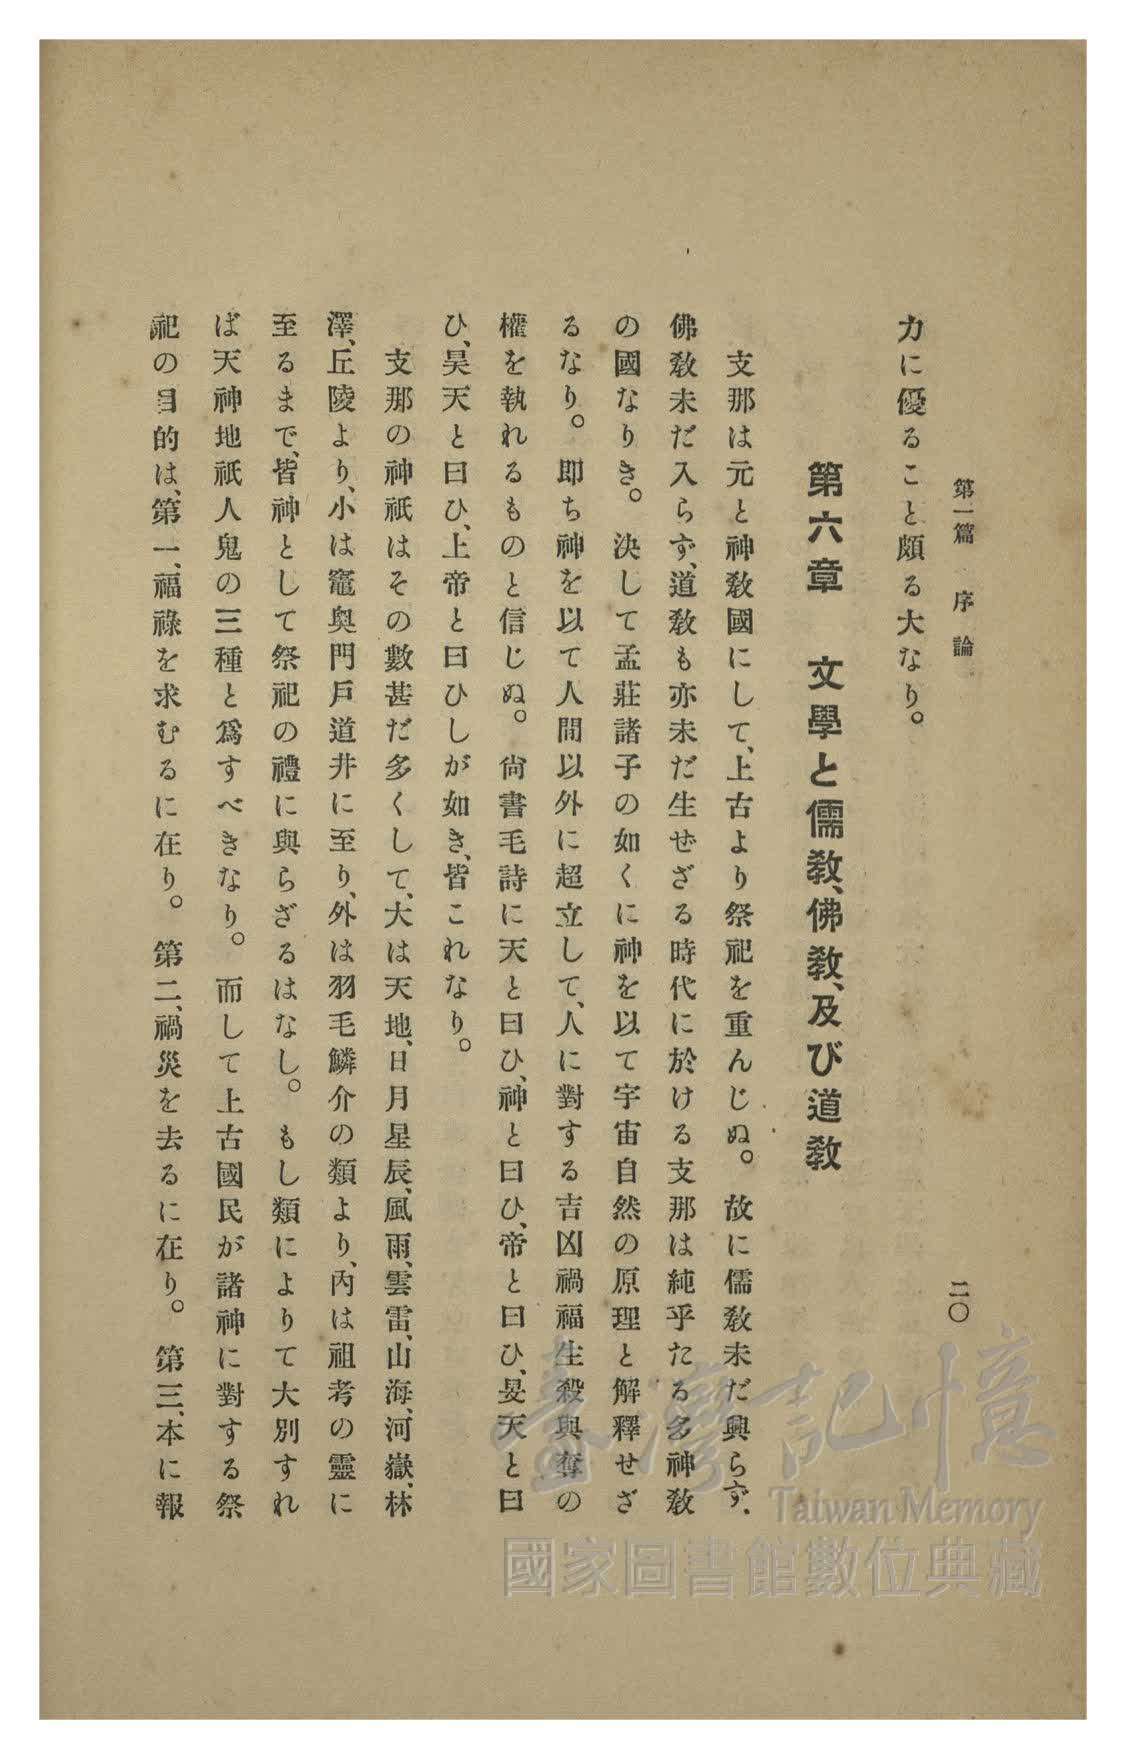 第一篇 序論
二〇
力に優ること頗る大なり。
第六章 文學と儒教、佛教、及び道教
支那は元と神教國にして、上古より祭祀を重んじぬ。故に儒教未だ興らず、
佛教未だ入らず、道教も亦未だ生ぜざる時代に於ける支那は純乎たる多神教
の國なりき。決して孟莊諸子の如くに神を以て宇宙自然の原理と解釋せざ
るなり。即ち神を以て人間以外に超立して、人に對する吉凶禍福生殺與奪の
權を執れるものと信じぬ。尙書毛詩に天と曰ひ、神と曰ひ、帝と曰ひ、旻天と曰
ひ、昊天と曰ひ、上帝と曰ひしが如き、皆これなり。
支那の神祇はその數甚だ多くして、大は天地、日月星辰、風雨、雲雷、山海、河嶽、林
澤、丘陵より、小は竈奧門戶道井に至り、外は羽毛鱗介の類より、內は祖考の靈に
至るまで、皆神として祭祀の禮に與らざるはなし。もし類によりて大別すれ
ば天神地祇人鬼の三種と爲すべきなり。而して上古國民が諸神に對する祭
祀の目的は、第一、福祿を求むるに在り。第二、禍災を去るに在り。第三、本に報
臺灣記憶
Taiwan Memory
國家圖書館數位典藏